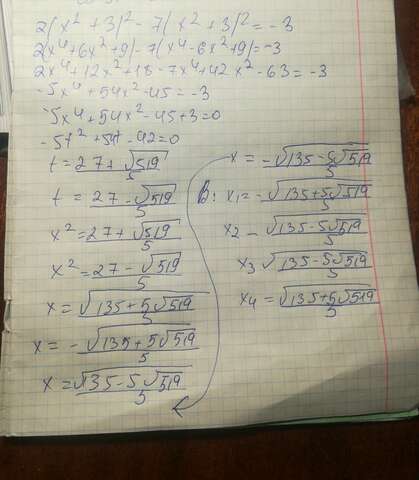 2(x² + 3)² - 7(x² + 3)² = -3
2(x⁴+6x²+9) - 7(x⁴-6x²+9) = -3
2x⁴+12x²+18-7x⁴+42x²-63 = -3
-5x⁴+54x²-45 = -3
-5x⁴+54x²-45+3=0
-5t²+54t-42=0
t = 27+√519/5
t = 27-√519/5
x² = 27+√519/5
x² = 27-√519/5
x = √135+5√519/5
x = -√135+5√519/5
x = √135-5√519/5
x = -√135-5√519/5
В: x₁ = -√135+5√519/5
x₂ - √135-5√519/5
x₃ √135-5√519/5
x₄ = √135+5√519/5